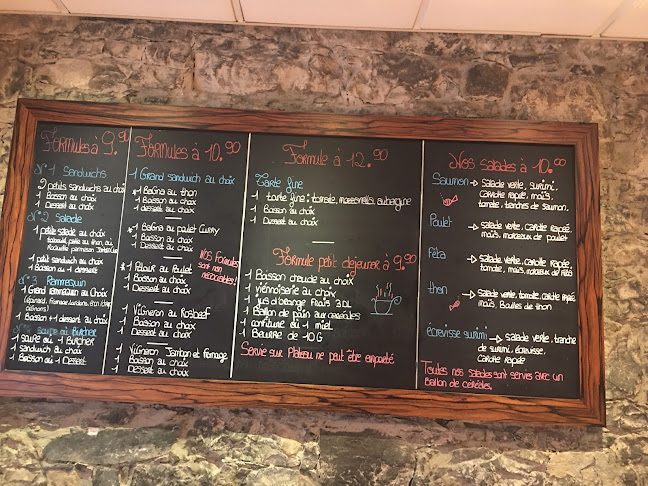 Formules à 9.90
N°1 Sandwichs
2 petits sandwichs au choix
1 Boisson au choix
1 Dessert au choix
N°2 Salade
1 petite salade au choix
1 petit sandwich au choix
1 Boisson ou 1 dessert
N°3 Rammequin
1 Grand rammequin au choix
Boisson + 1 dessert au choix
N°4 soupe au Butcher
1 soupe au 1 Butcher
1 sandwich au choix
1 Boisson ou 1 Dessert
Formules à 10.90
1 Grand sandwich au choix
* 1 Bagna au thon
1 Boisson au choix
1 Dessert au choix
* 1 Bagna au poulet Curry
1 Boisson au choix
1 Dessert au choix
Nos Formules
sont non
négociables!
* 1 Retour au Poulet
1 Boisson au choix
1 Dessert au choix
1 Vigneron au Rosbeef
1 Boisson au choix
1 Dessert au choix
1 Vigneron Jambon et fromage
1 Boisson au choix
1 Dessert au choix
Formule à 12.90
Tarte fine
1 tarte fine: tomate, mozzarella, aubergine
1 Boisson au choix
1 Dessert au choix
Formule petit déjeuner à 9.90
1 Boisson chaude au choix
1 viennoiserie au choix
1 jus d'orange frais 3 DL
1 Ballon de pain aux céréales
1 confiture ou 1 miel
1 Beurre de 10 G
Servie sur Plateau ne peut être emporté
Nos salades à 10.00
Saumon → salade verte, surimi,
carotte rapée, maïs,
tomate, tranches de saumon.
Poulet → salade verte, carotte rapée,
maïs, morceaux de poulet
Féta → salade verte, carotte rapée,
tomate, maïs, morceaux de féta
thon → salade verte, tomate, carotte rapée
maïs. Boulles de thon
écrevisse surimi → salade verte, tranche
de surimi, écrevisse.
carotte rapée
Toutes nos salades sont servies avec un
Ballon de céréales.